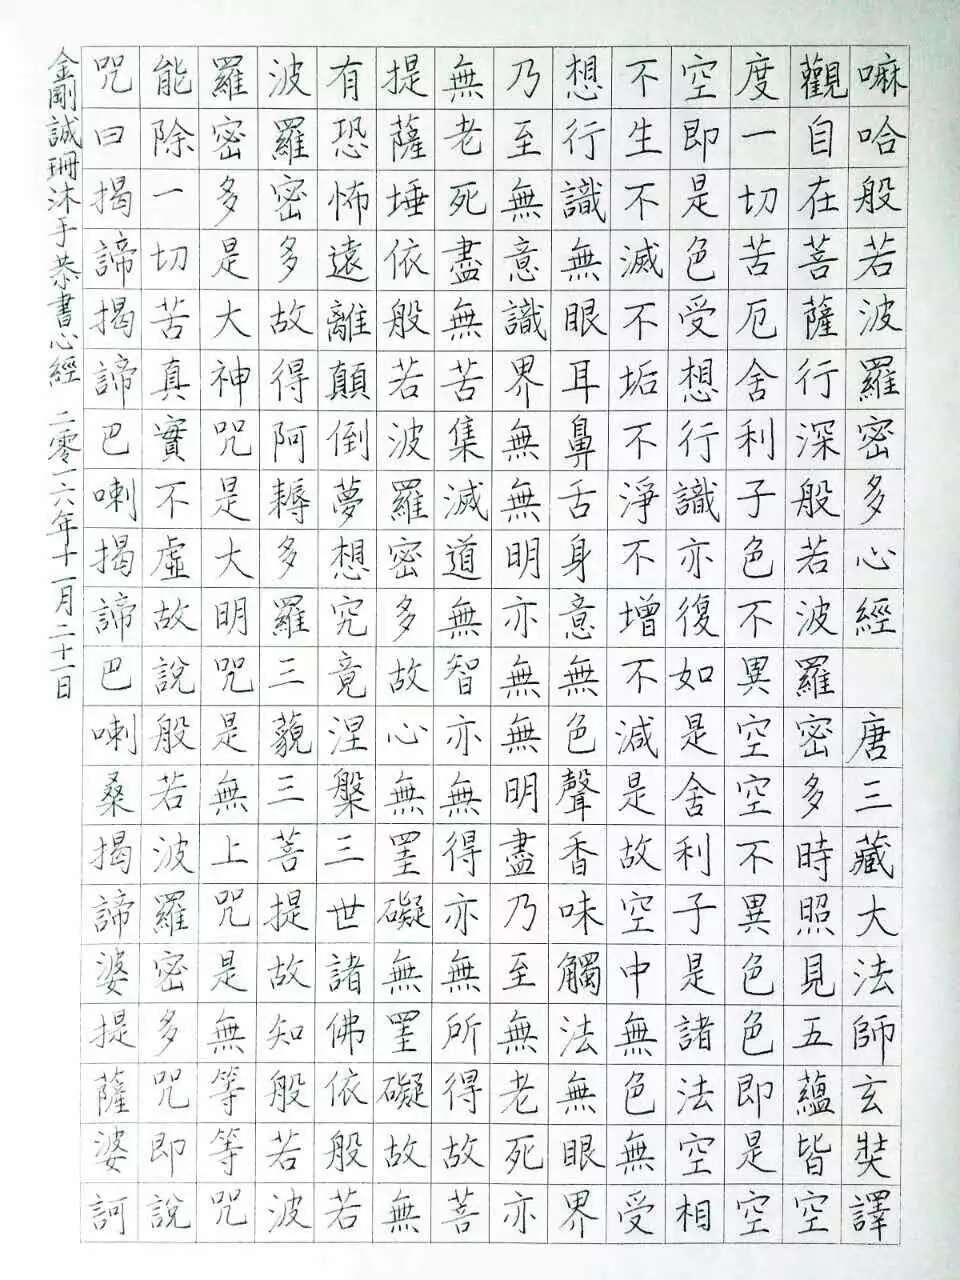 嘛哈般若波羅密多心經 唐三藏大法師玄奘譯
觀自在菩薩行深般若波羅密多時照見五蘊皆空
度一切苦厄舍利子色不異空空不異色色即是空
空即是色受想行識亦復如是舍利子是諸法空相
不生不滅不垢不淨不增不減是故空中無色無受
想行識無眼耳鼻舌身意無色聲香味觸法無眼界
乃至無意識界無無明亦無無明盡乃至無老死亦
無老死盡無苦集滅道無智亦無得亦無所得故菩
提薩埵依般若波羅密多故心無罣礙無罣礙故無
有恐怖遠離顛倒夢想究竟涅槃三世諸佛依般若
波羅密多故得阿耨多羅三藐三菩提故知般若波
羅密多是大神咒是大明咒是無上咒是無等等咒
能除一切苦真實不虛故說般若波羅密多咒即說
咒曰揭諦揭諦巴喇揭諦巴喇桑揭諦婆提薩婆訶
金剛誠珊沐手恭書心經 二零一六年十一月二十一日